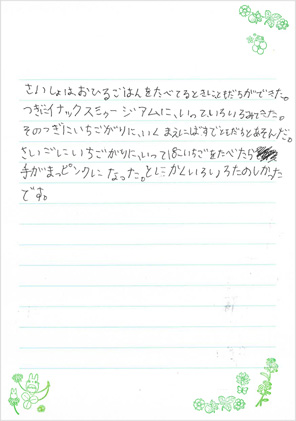 さいしょは、おひるごはんをたべてるときにともだちができた。
つぎにイナックスミュージアムに、いっていろいろみてきた。
そのつぎにいちごがりに、いくまえにばすでともだちとあそんだ。
さいごにいちごがりに、いって18こいちごをたべたら
手がまっピンクになった。とにかくいろいろたのしかった
です。